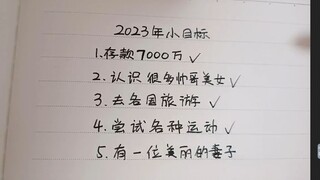 2023年小目标
1.存款7000万✓
2.认识很多帅哥美女✓
3.去各国旅游✓
4.尝试各种运动✓
5.有一位美丽的妻子